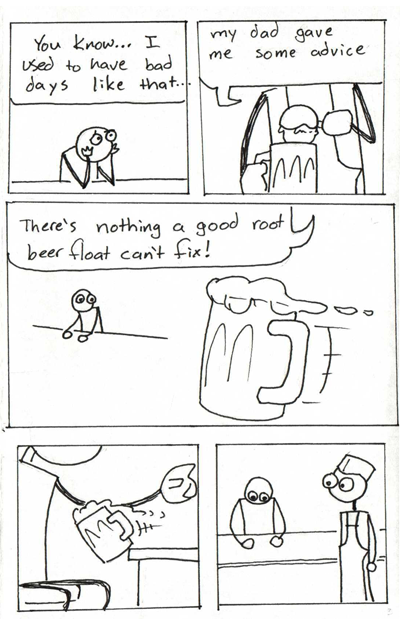 You know... I
used to have bad
days like that...
my dad gave
me some advice
There's nothing a good root
beer float can't fix!